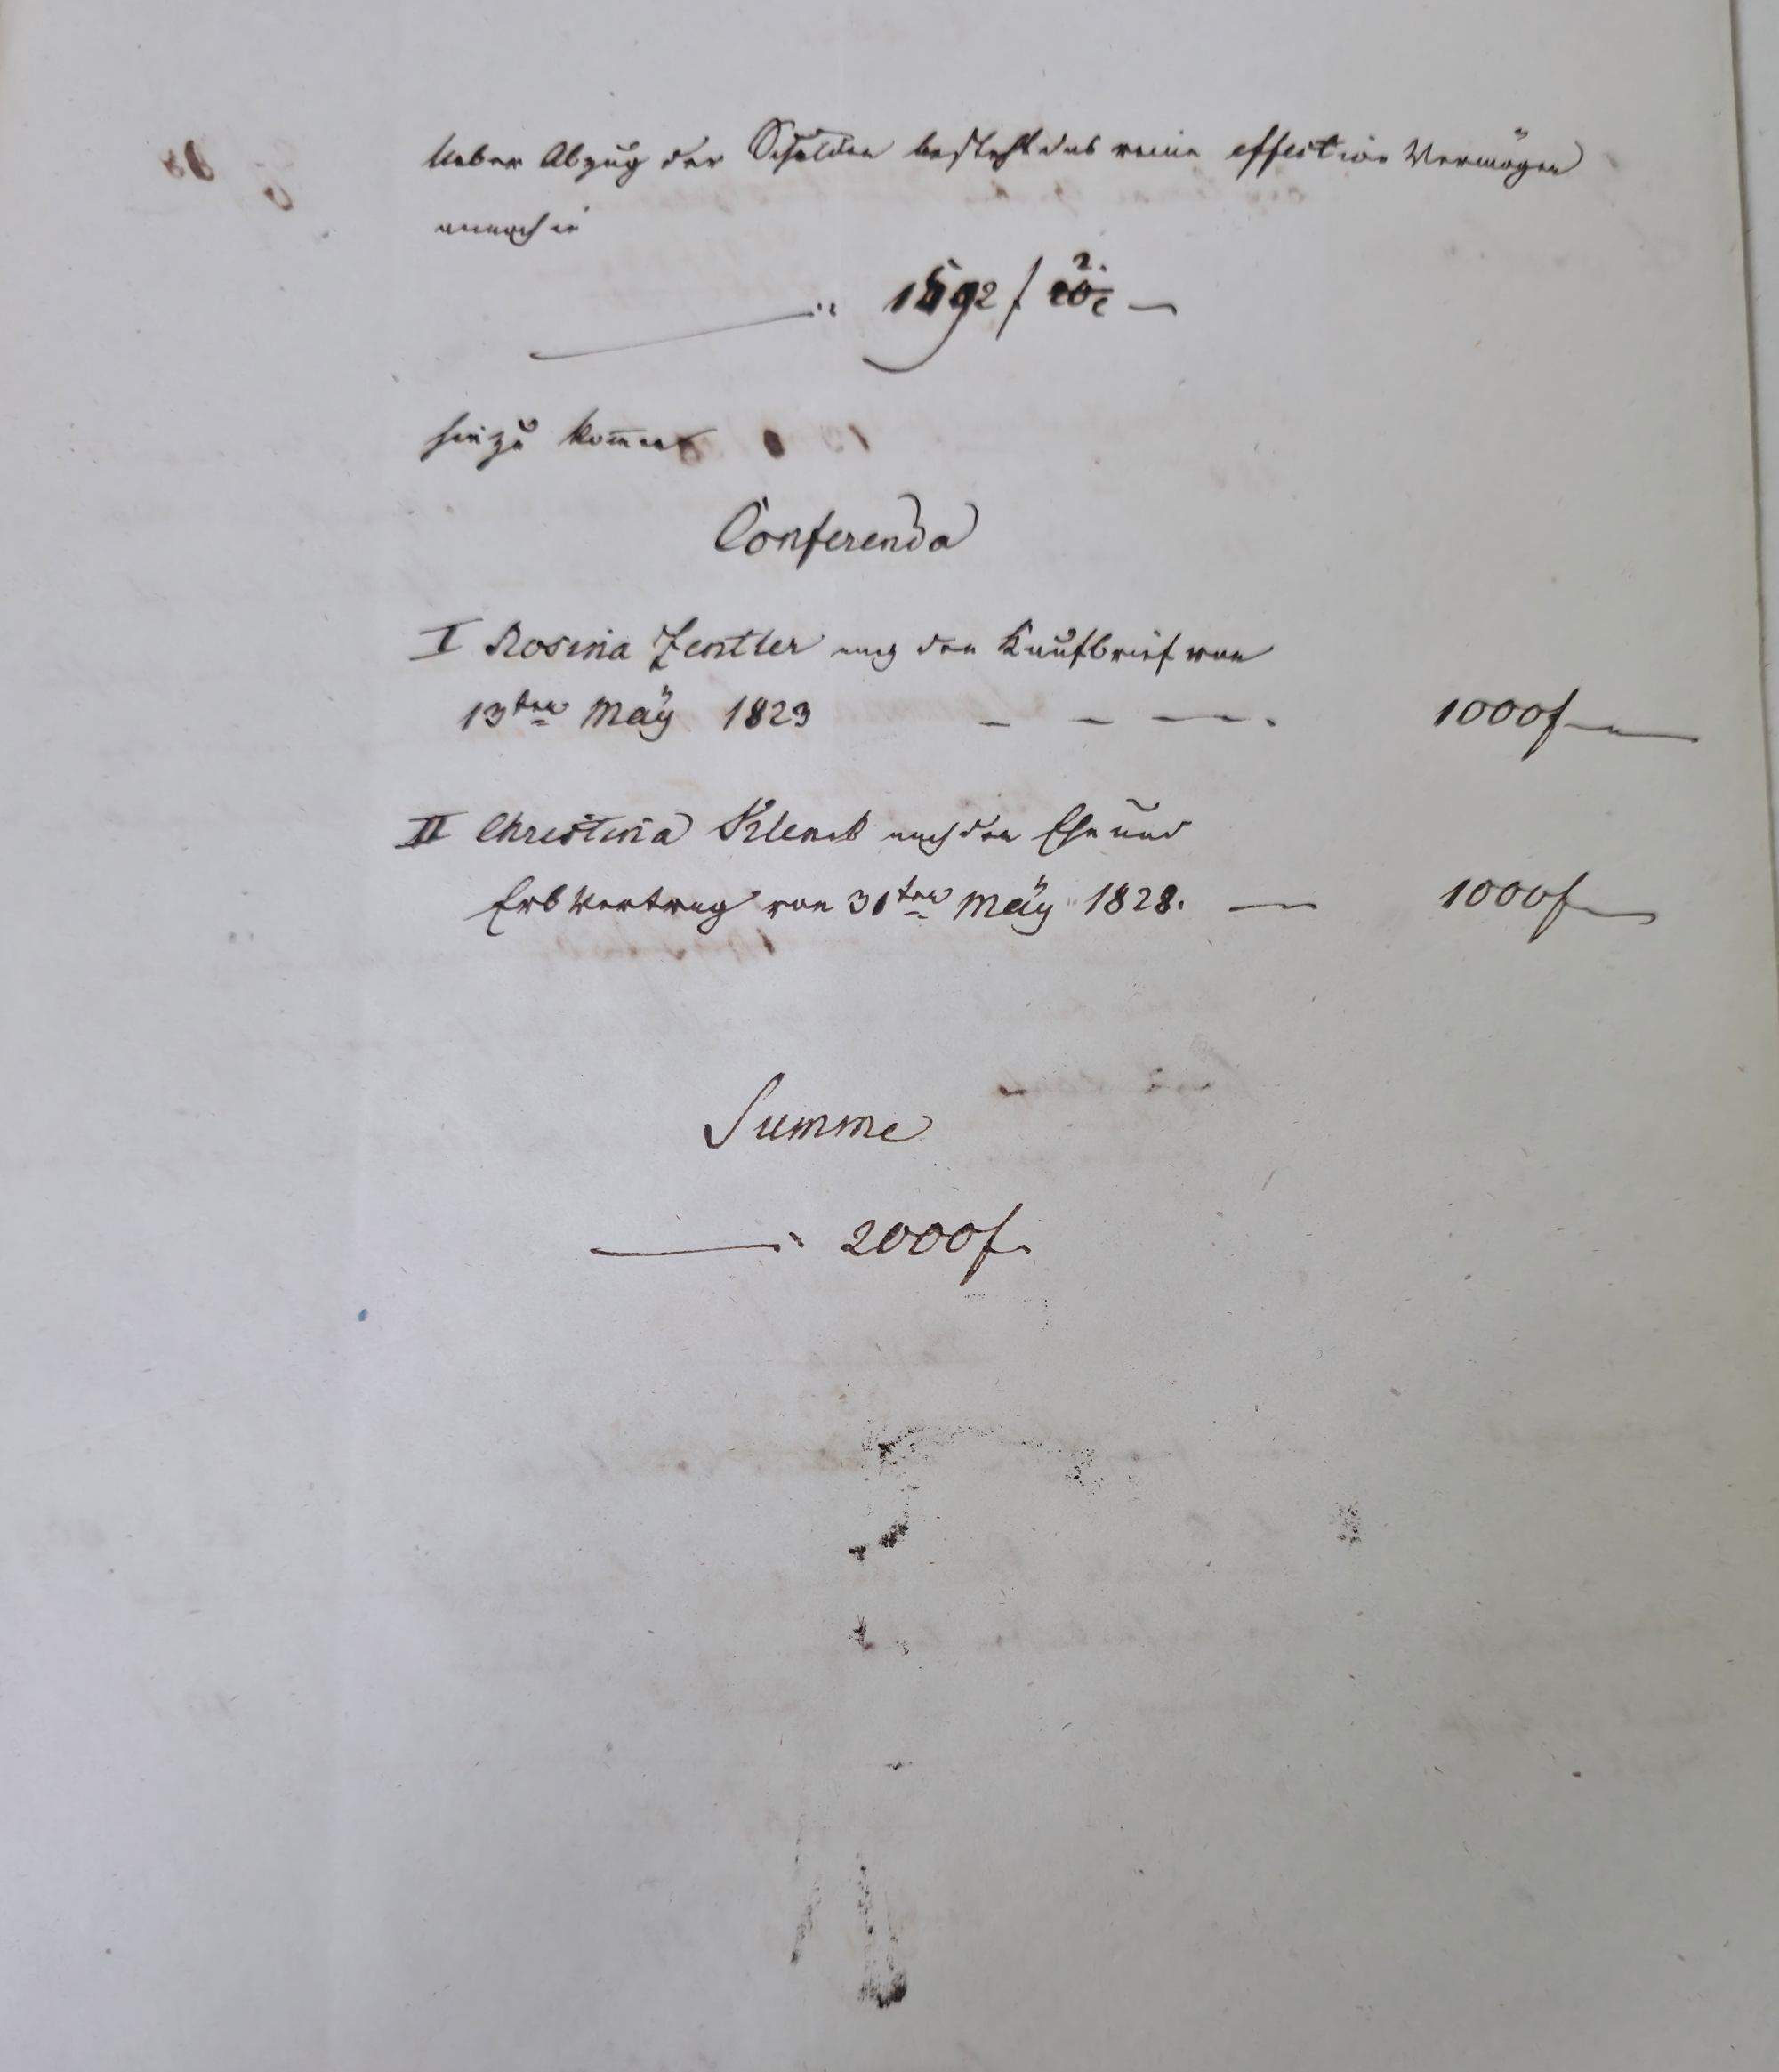 Ueber Abzug der Schulden besteht das reine effective Vermögen
annoch in
1592 f 2.
hinzu kommen
Conferenda
I Rosina Zentler nach den Kaufbrief von
13ten Maÿ 1823 - - - 1000f
II Christina Klenk nach den Ehe und
Erb Vertrag von 31ten Maÿ 1828. — 1000f
Summe
2000f.